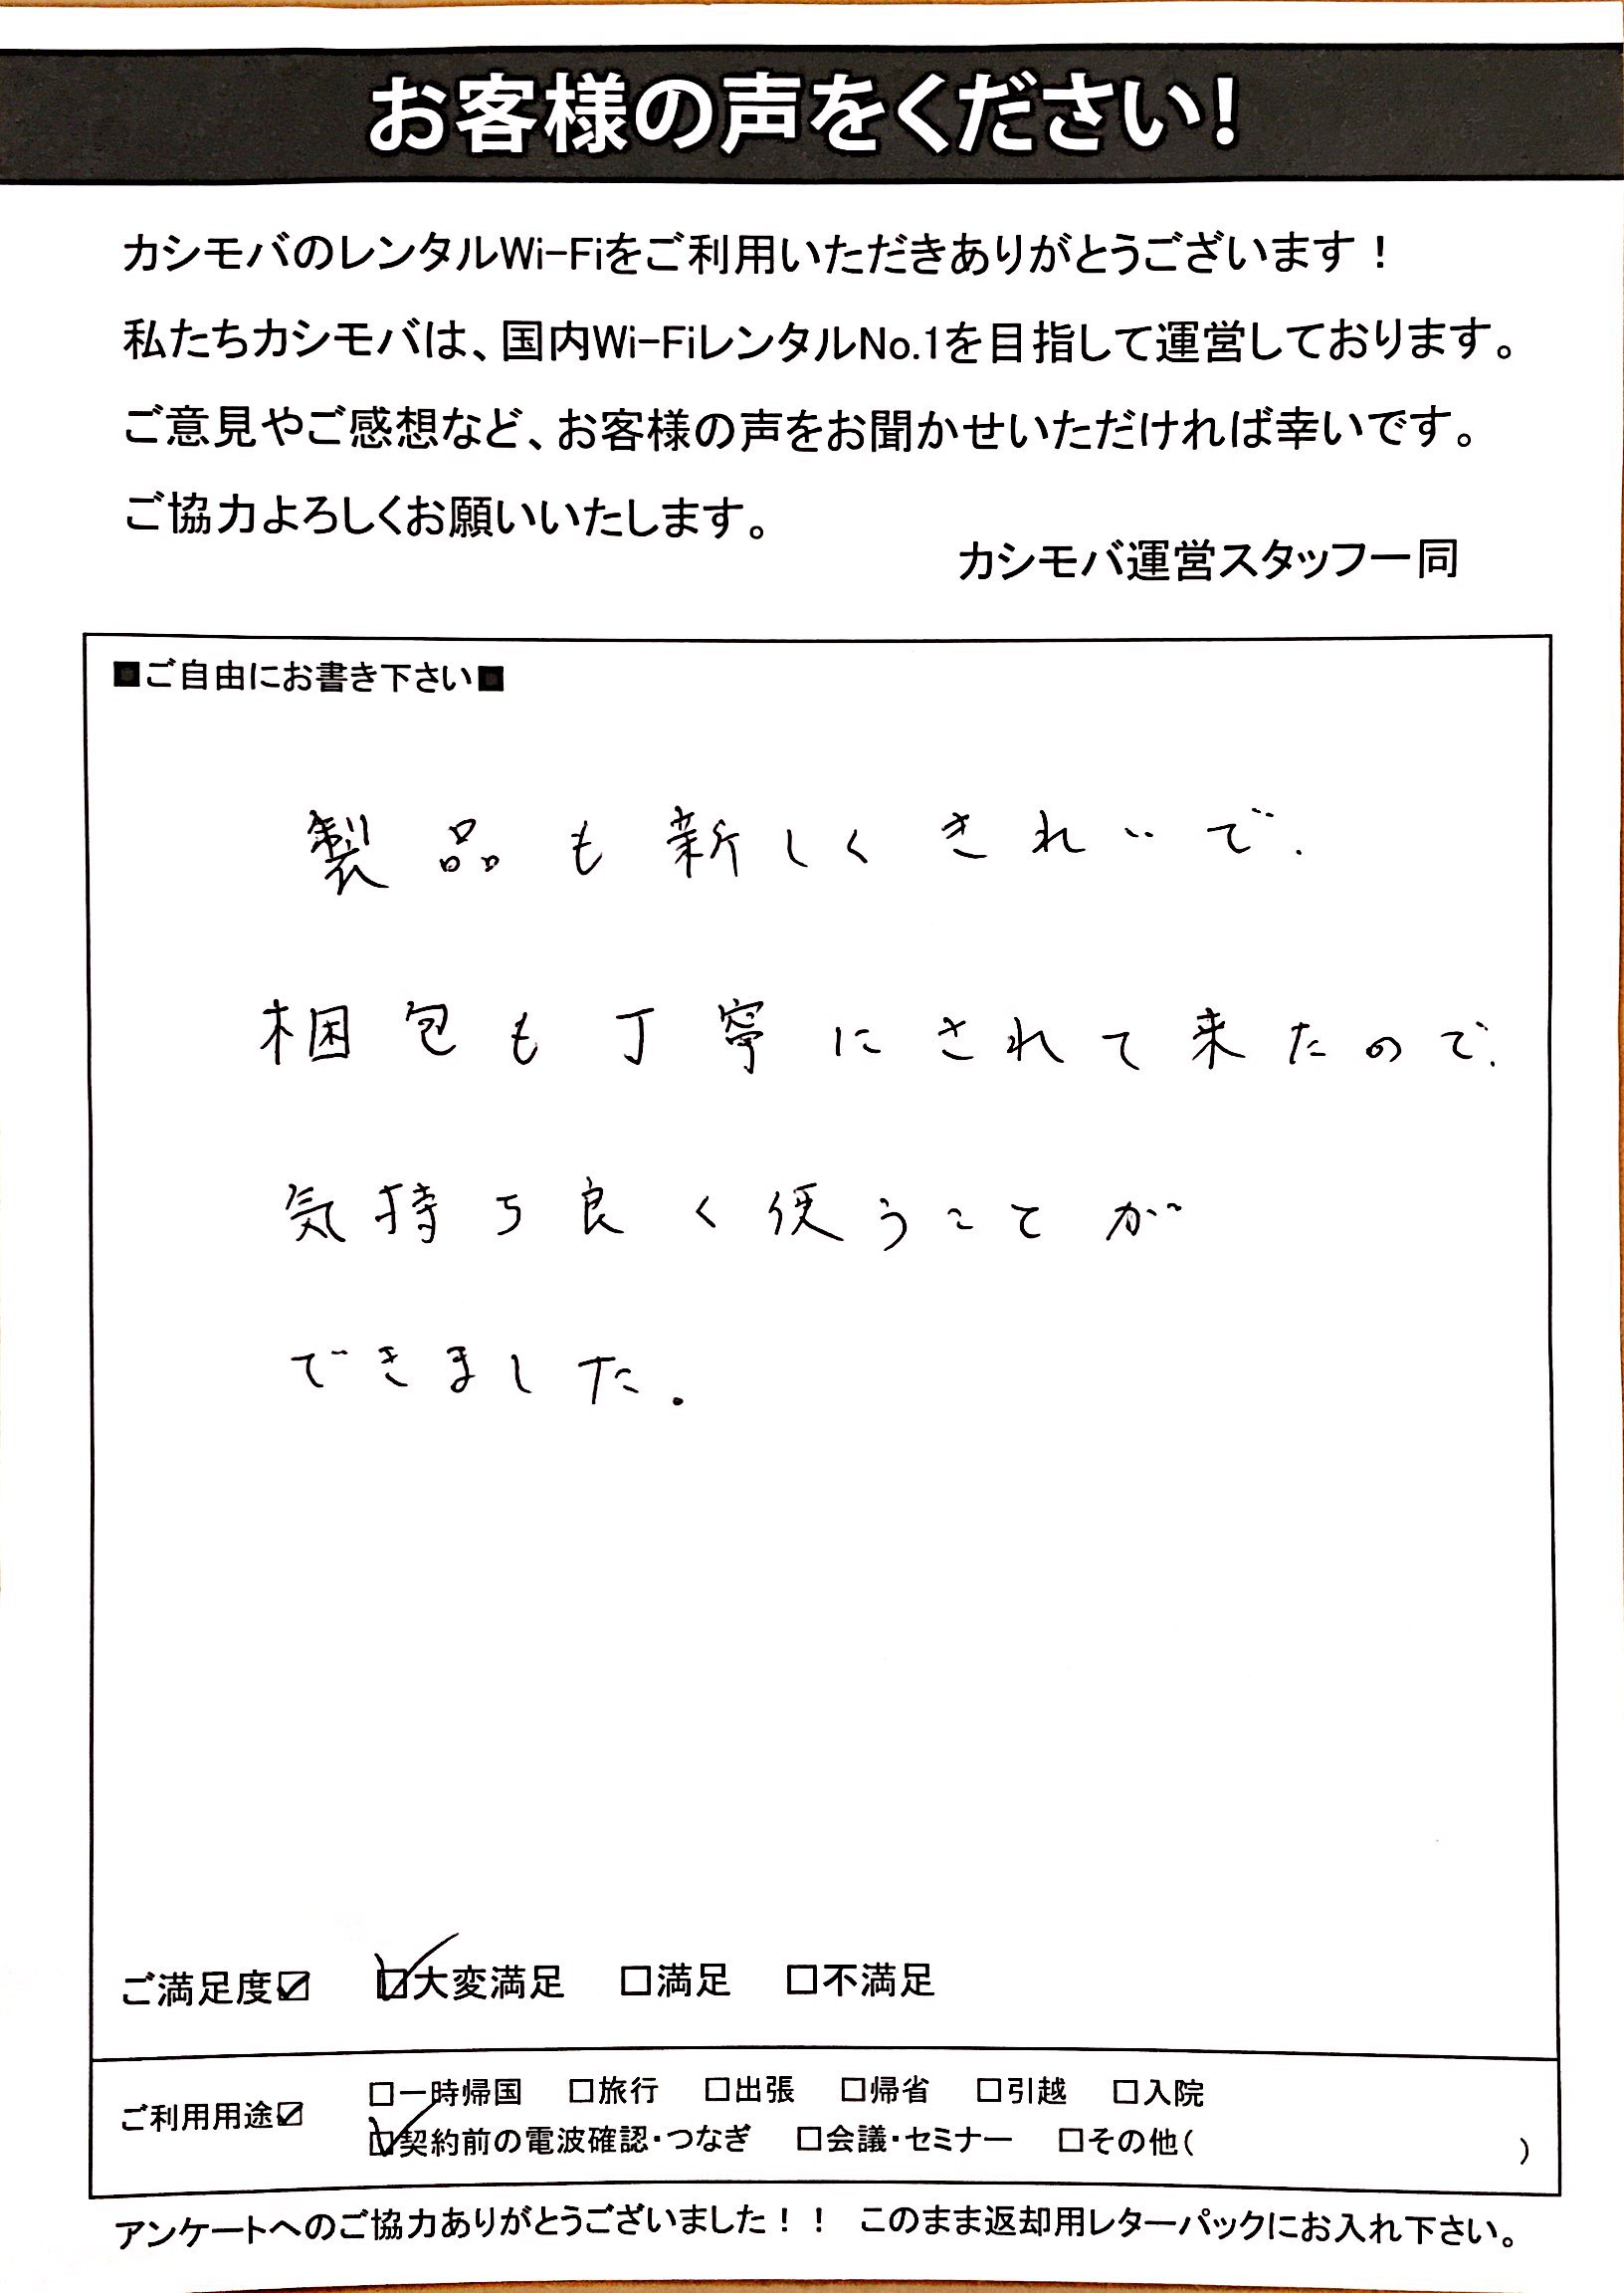 お客様の声をください!
カシモバのレンタルWi-Fiをご利用いただきありがとうございます!
私たちカシモバは、国内Wi-FiレンタルNo.1を目指して運営しております。
ご意見やご感想など、お客様の声をお聞かせいただければ幸いです。
ご協力よろしくお願いいたします。
カシモバ運営スタッフ一同
■ご自由にお書き下さい■
製品も新しくきれいで.
梱包も丁寧にされて来たので.
気持ち良く使うことが
できました.
ご満足度☑ ☑大変満足 □満足 □不満足
ご利用用途☑ □一時帰国 □旅行 □出張 □帰省 □引越 □入院
☑契約前の電波確認・つなぎ □会議・セミナー □その他( )
アンケートへのご協力ありがとうございました!! このまま返却用レターパックにお入れ下さい。